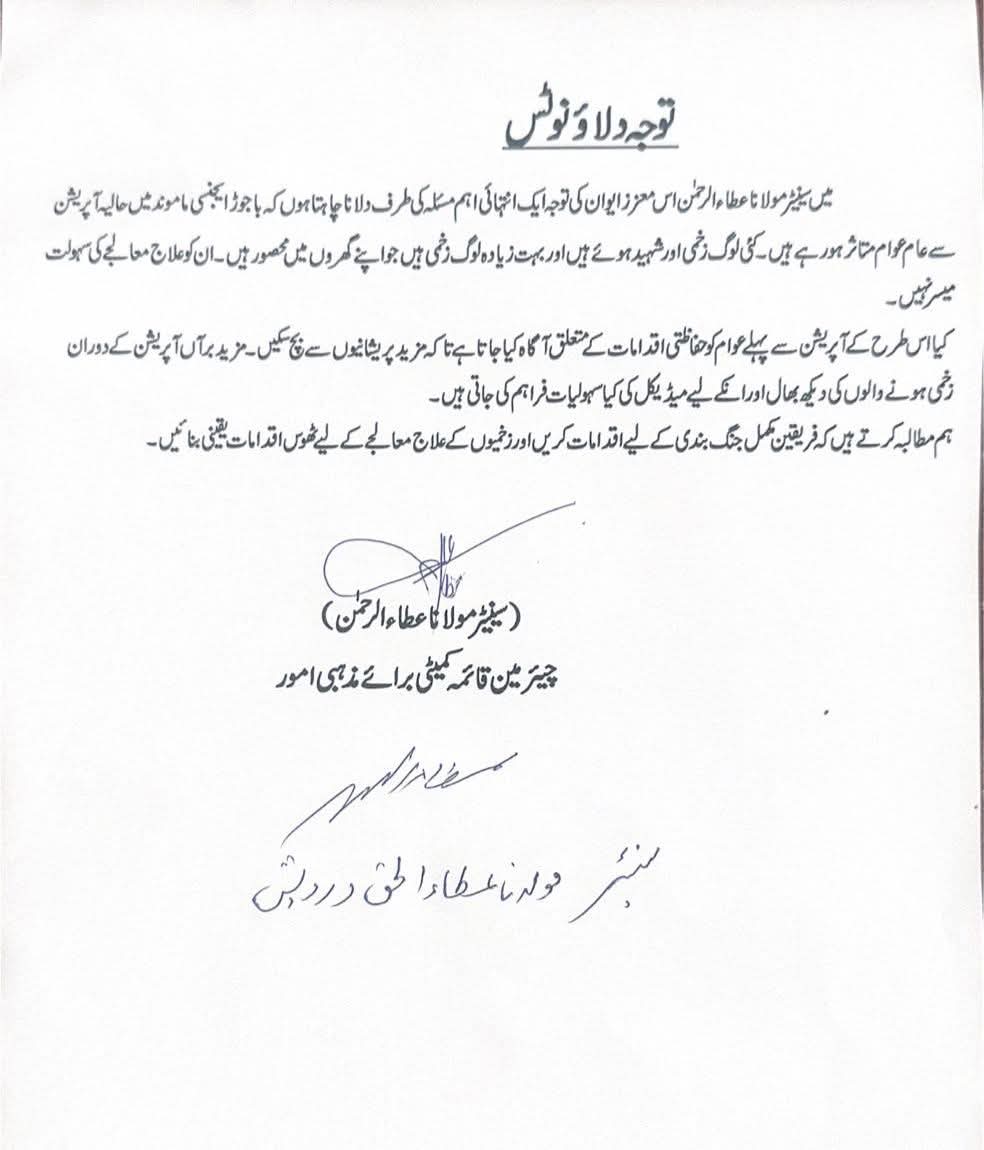 توجہ دلاؤ نوٹس
میں سینیٹر مولانا عطاء الرحمٰن اس معزز ایوان کی توجہ ایک انتہائی اہم مسئلہ کی طرف دلانا چاہتا ہوں کہ باجوڑ ایجنسی ماموند میں حالیہ آپریشن
سے عام عوام متاثر ہو رہے ہیں۔ کئی لوگ زخمی اور شہید ہوئے ہیں اور بہت زیادہ لوگ زخمی ہیں جو اپنے گھروں میں محصور ہیں۔ ان کو علاج معالجے کی سہولت
میسر نہیں۔
کیا اس طرح کے آپریشن سے پہلے عوام کو حفاظتی اقدامات کے متعلق آگاہ کیا جاتا ہے تاکہ مزید پریشانیوں سے بچ سکیں۔ مزید برآں آپریشن کے دوران
زخمی ہونے والوں کی دیکھ بھال اور انکے لیے میڈیکل کی کیا سہولیات فراہم کی جاتی ہیں۔
ہم مطالبہ کرتے ہیں کہ فریقین مکمل جنگ بندی کے لیے اقدامات کریں اور زخمیوں کے علاج معالجے کے لیے ٹھوس اقدامات یقینی بنائیں۔
(سینیٹر مولانا عطاء الرحمٰن)
چیئرمین قائمہ کمیٹی برائے مذہبی امور
سنیٹر مولانا عطاء الحق درویش